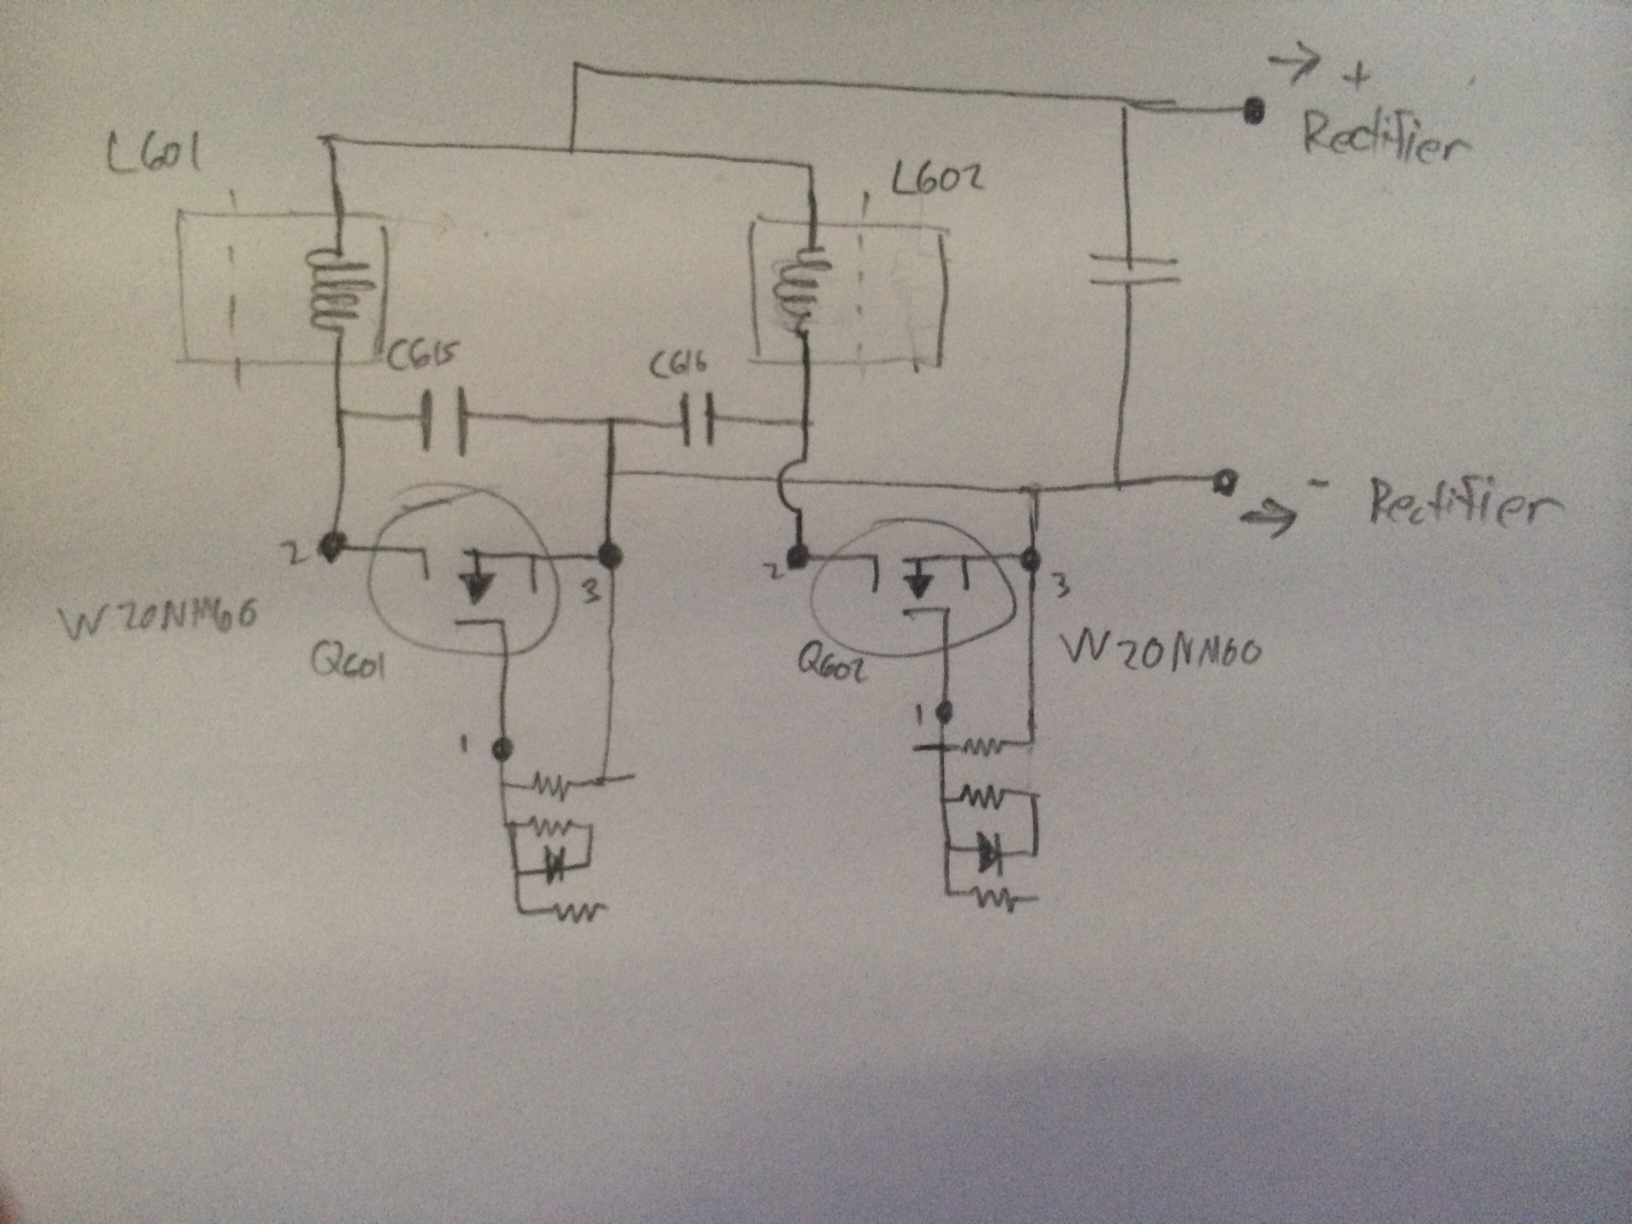 → +
Rectifier
L601
L602
C615
C616
→ - Rectifier
2
3
2
3
W20NM60
Q601
Q602
W20NM60
1
1